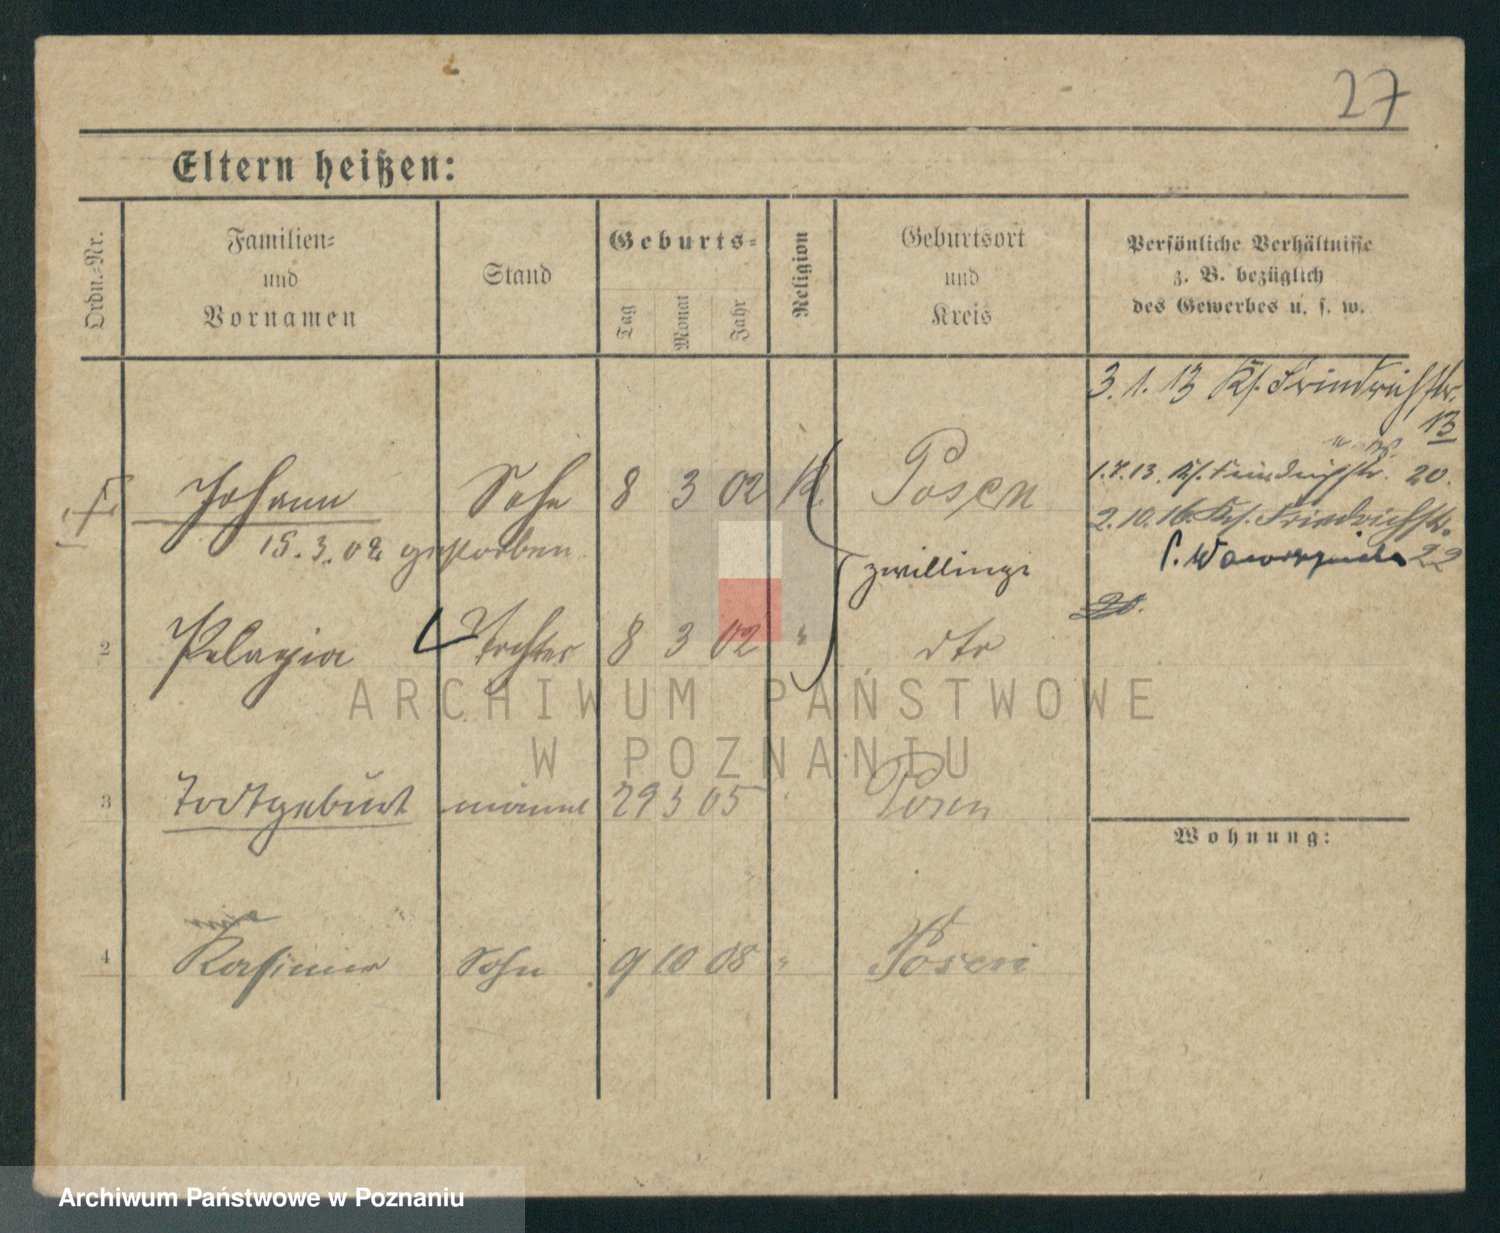 27
Eltern heißen:
Ordn.-Nr.
Familien-
und
Vornamen
Stand
Geburts-
Tag
Monat
Jahr
Religion
Geburtsort
und
Kreis
Persönliche Verhältnisse
z. B. bezüglich
des Gewerbes u. s. w.
3.1.13 Kl. Friedrichstr.
13
Johann Sohn 8 3 02 K. Posen
1.7.13. Kl. Friedrichstr. 20.
15.3.02 gestorben
2.10.16 Kl. Friedrichstr.
22
Zwillinge
2 Pelagia Tochter 8 3 02 " dto
ARCHIWUM PAŃSTWOWE
W POZNANIU
3 Todtgeburt männl 29 5 05 " Posen
Wohnung:
4 Kasimir Sohn 9 10 08 " Posen
Archiwum Państwowe w Poznaniu